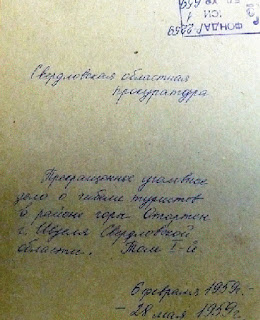 ФОНД Р 2259
Свердловская областная
прокуратура
Прекращенное уголовное
дело о гибели туристов
в районе горы Отортен
г. Ивделя Свердловской
области. Том I-й
6 февраля 1959г. -
- 28 мая 1959г.